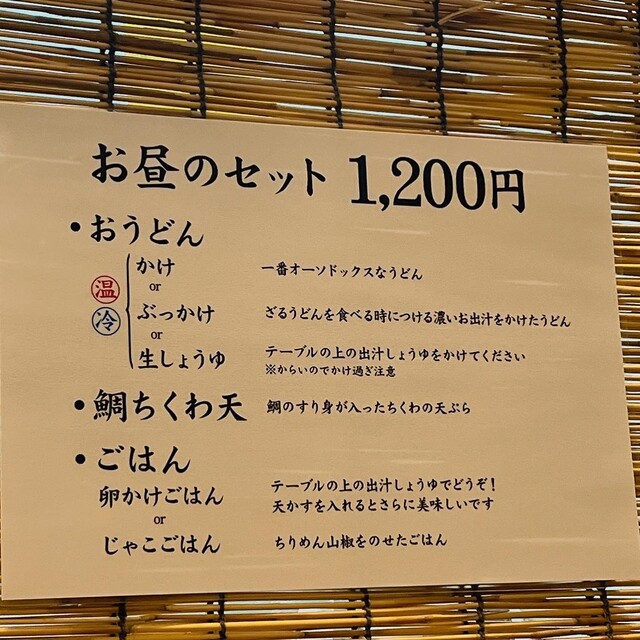 お昼のセット 1,200円
・おうどん
温
冷
かけ 一番オーソドックスなうどん
or
ぶっかけ ざるうどんを食べる時につける濃いお出汁をかけたうどん
or
生しょうゆ テーブルの上の出汁しょうゆをかけてください
※からいのでかけ過ぎ注意
・鯛ちくわ天 鯛のすり身が入ったちくわの天ぷら
・ごはん
卵かけごはん テーブルの上の出汁しょうゆでどうぞ!
天かすを入れるとさらに美味しいです
or
じゃこごはん ちりめん山椒をのせたごはん